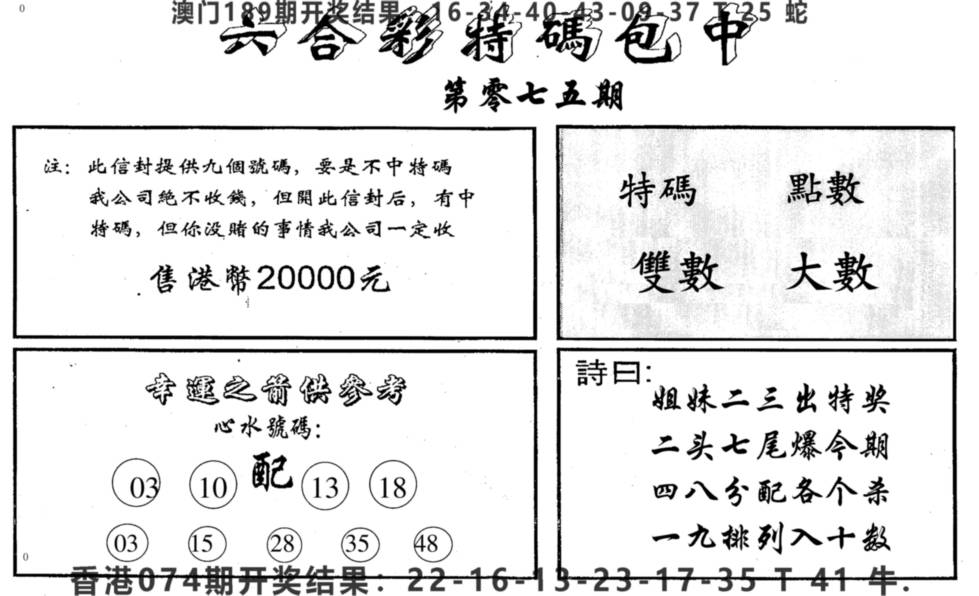 澳门189期开奖结果：16-34-40-43-09-37 T 25 蛇
六合彩特碼包中
第零七五期
注：此信封提供九個號碼，要是不中特碼
我公司絕不收錢，但開此信封后，有中
特碼，但你没賭的事情我公司一定收
售港幣20000元
特碼 點數
雙數 大數
幸運之箭供參考
心水號碼：
03 10 配 13 18
03 15 28 35 48
詩曰：
姐妹二三出特奖
二头七尾爆今期
四八分配各个杀
一九排列入十数
香港074期开奖结果：22-16-13-23-17-35 T 41 牛.